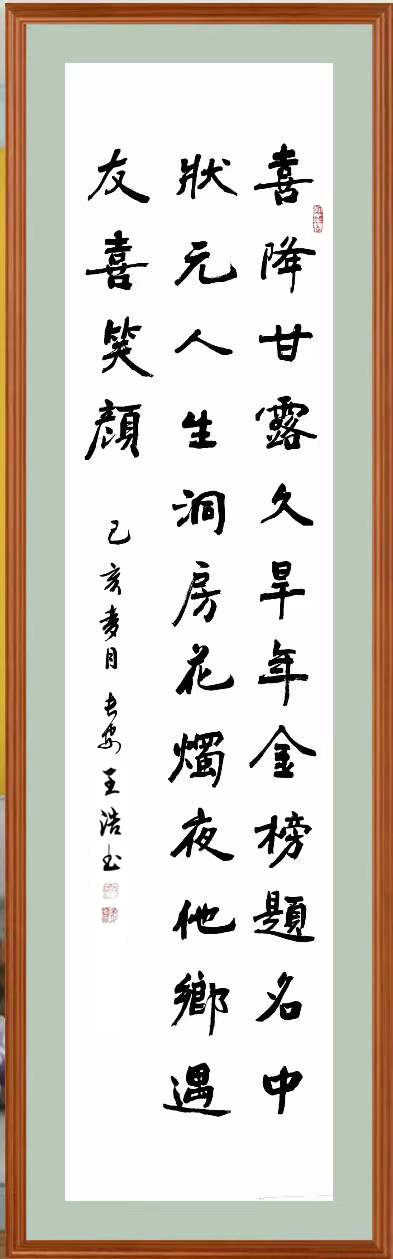 喜降甘露久旱年金榜題名中
狀元人生洞房花燭夜他鄉遇
友喜笑顏
己亥麥月長安王浩書